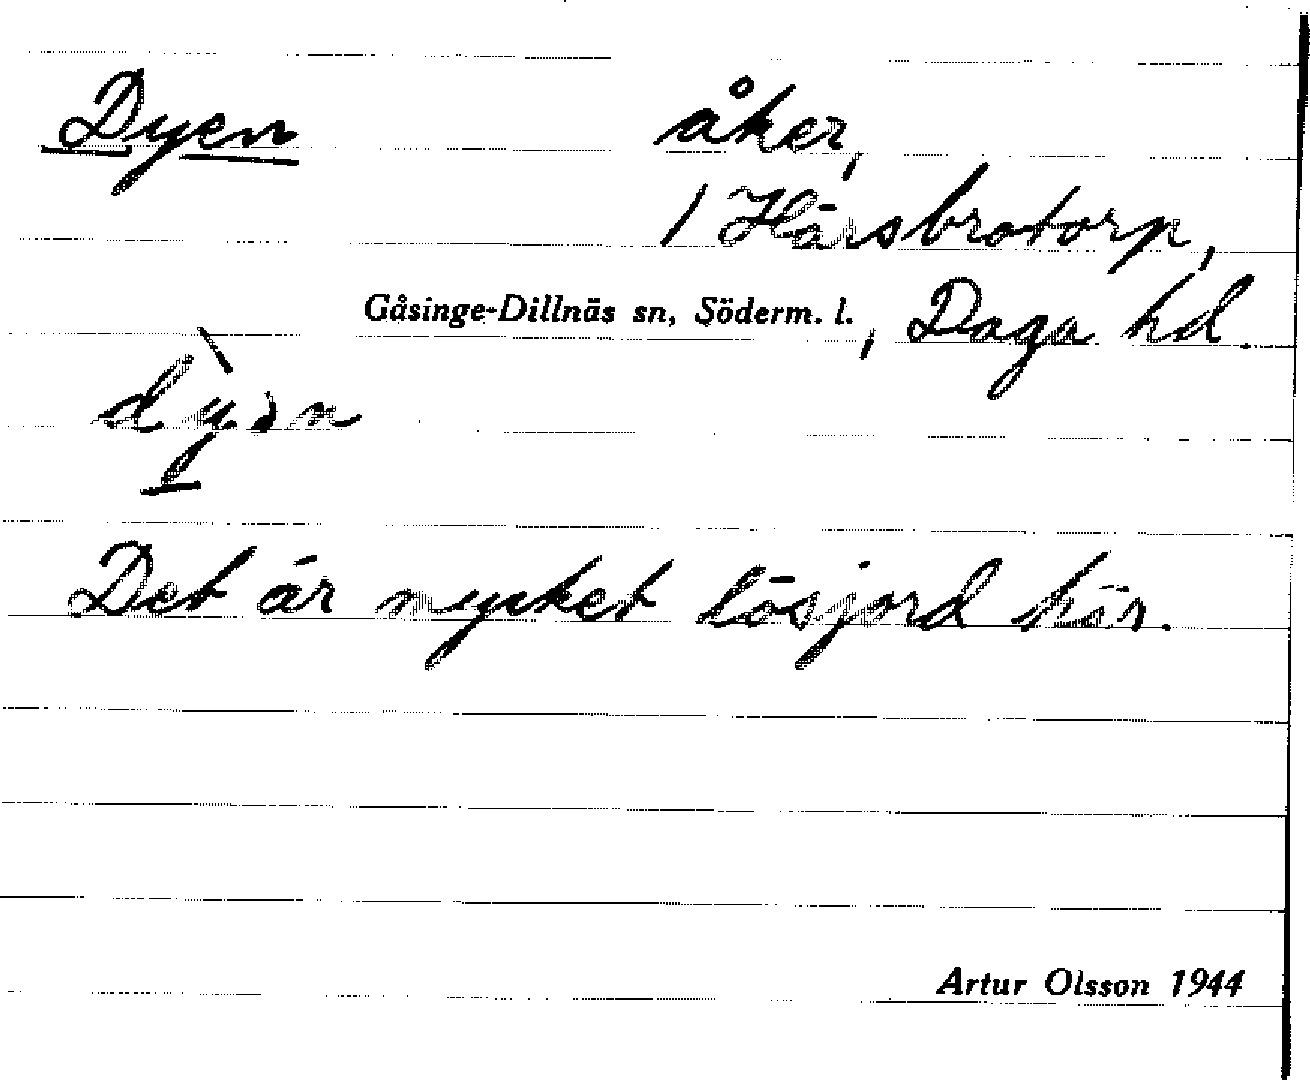 Dyen åker,
/ Härsbrotorp,
Gåsinge-Dillnäs sn, Söderm. l., Daga hd.
dỳən
Det är mycket lösjord här.
Artur Olsson 1944